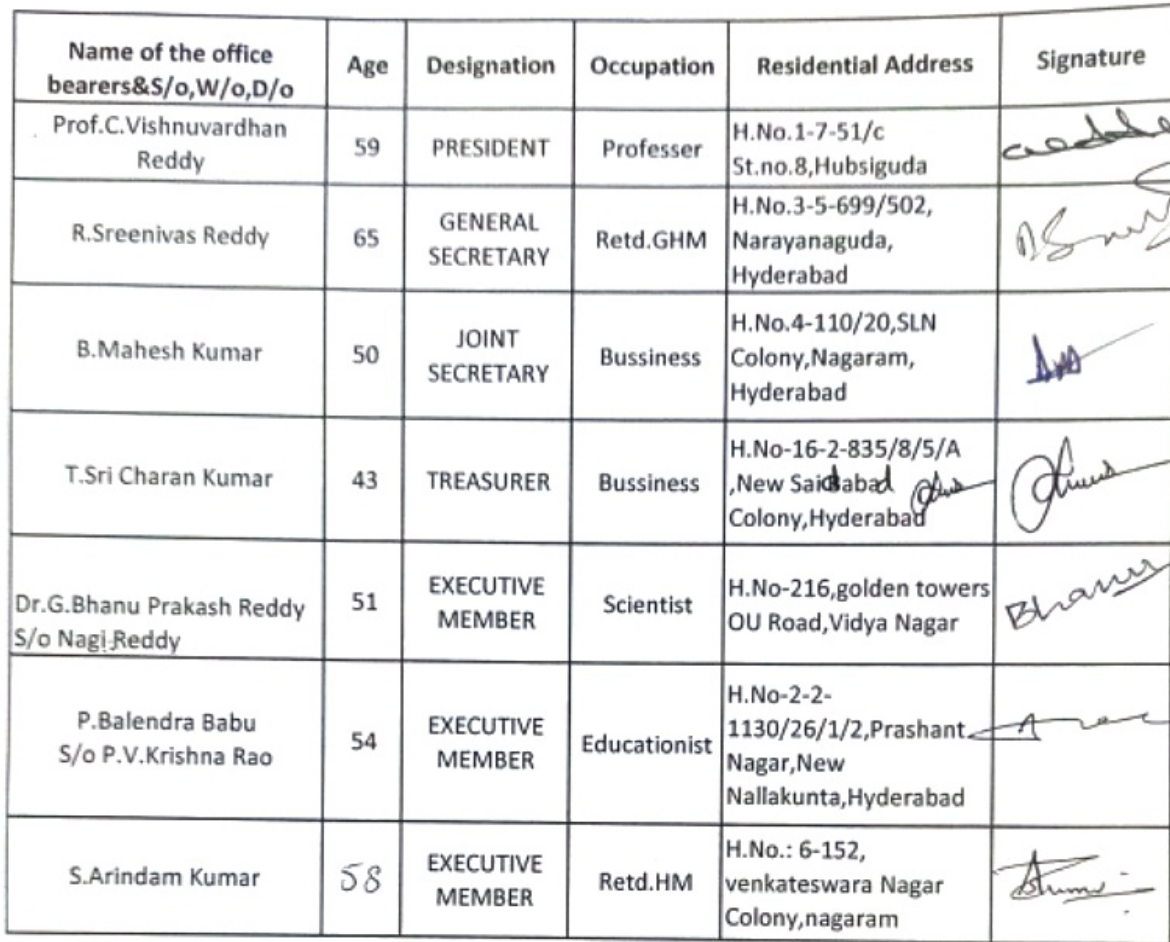 Name of the office bearers&S/o,W/o,D/o | Age | Designation | Occupation | Residential Address | Signature
Prof.C.Vishnuvardhan
Reddy
59
PRESIDENT
Professer
H.No.1-7-51/c
St.no.8,Hubsiguda
R.Sreenivas Reddy
65
GENERAL
SECRETARY
Retd.GHM
H.No.3-5-699/502,
Narayanaguda,
Hyderabad
B.Mahesh Kumar
50
JOINT
SECRETARY
Bussiness
H.No.4-110/20,SLN
Colony,Nagaram,
Hyderabad
T.Sri Charan Kumar
43
TREASURER
Bussiness
H.No-16-2-835/8/5/A
,New Saidabad
Colony,Hyderabad
Dr.G.Bhanu Prakash Reddy
S/o Nagi Reddy
51
EXECUTIVE
MEMBER
Scientist
H.No-216,golden towers
OU Road,Vidya Nagar
Bhanu
P.Balendra Babu
S/o P.V.Krishna Rao
54
EXECUTIVE
MEMBER
Educationist
H.No-2-2-
1130/26/1/2,Prashant
Nagar,New
Nallakunta,Hyderabad
S.Arindam Kumar
58
EXECUTIVE
MEMBER
Retd.HM
H.No.: 6-152,
venkateswara Nagar
Colony,nagaram